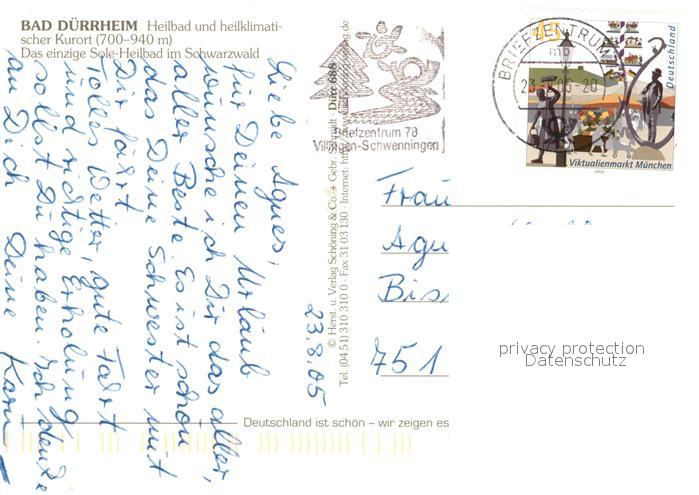 BAD DÜRRHEIM Heilbad und heilklimati-
scher Kurort (700–940 m)
Das einzige Sole-Heilbad im Schwarzwald
Liebe Agnes,
für Deinen Urlaub
wünsche ich Dir das aller,
aller Beste. Es ist schön
das Deine Schwester mit
Dir fährt
Tolles Wetter, gute Fahrt
und richtige Erholung
sollst Du haben. Ich denke
an Dich Deine Karin
23.8.05
© Herst. u. Verlag Schöning & Co. + Gebr. Schmidt
Tel. (04 51) 310 310 0 · Fax 31 03 130 · Internet:
Briefzentrum 78
Villingen-Schwenningen
BRIEFZENTRUM
mb
-20
45
Deutschland
Viktualienmarkt München
2003
Frau
Agn
Bis
751
privacy protection
Datenschutz
Deutschland ist schön – wir zeigen es